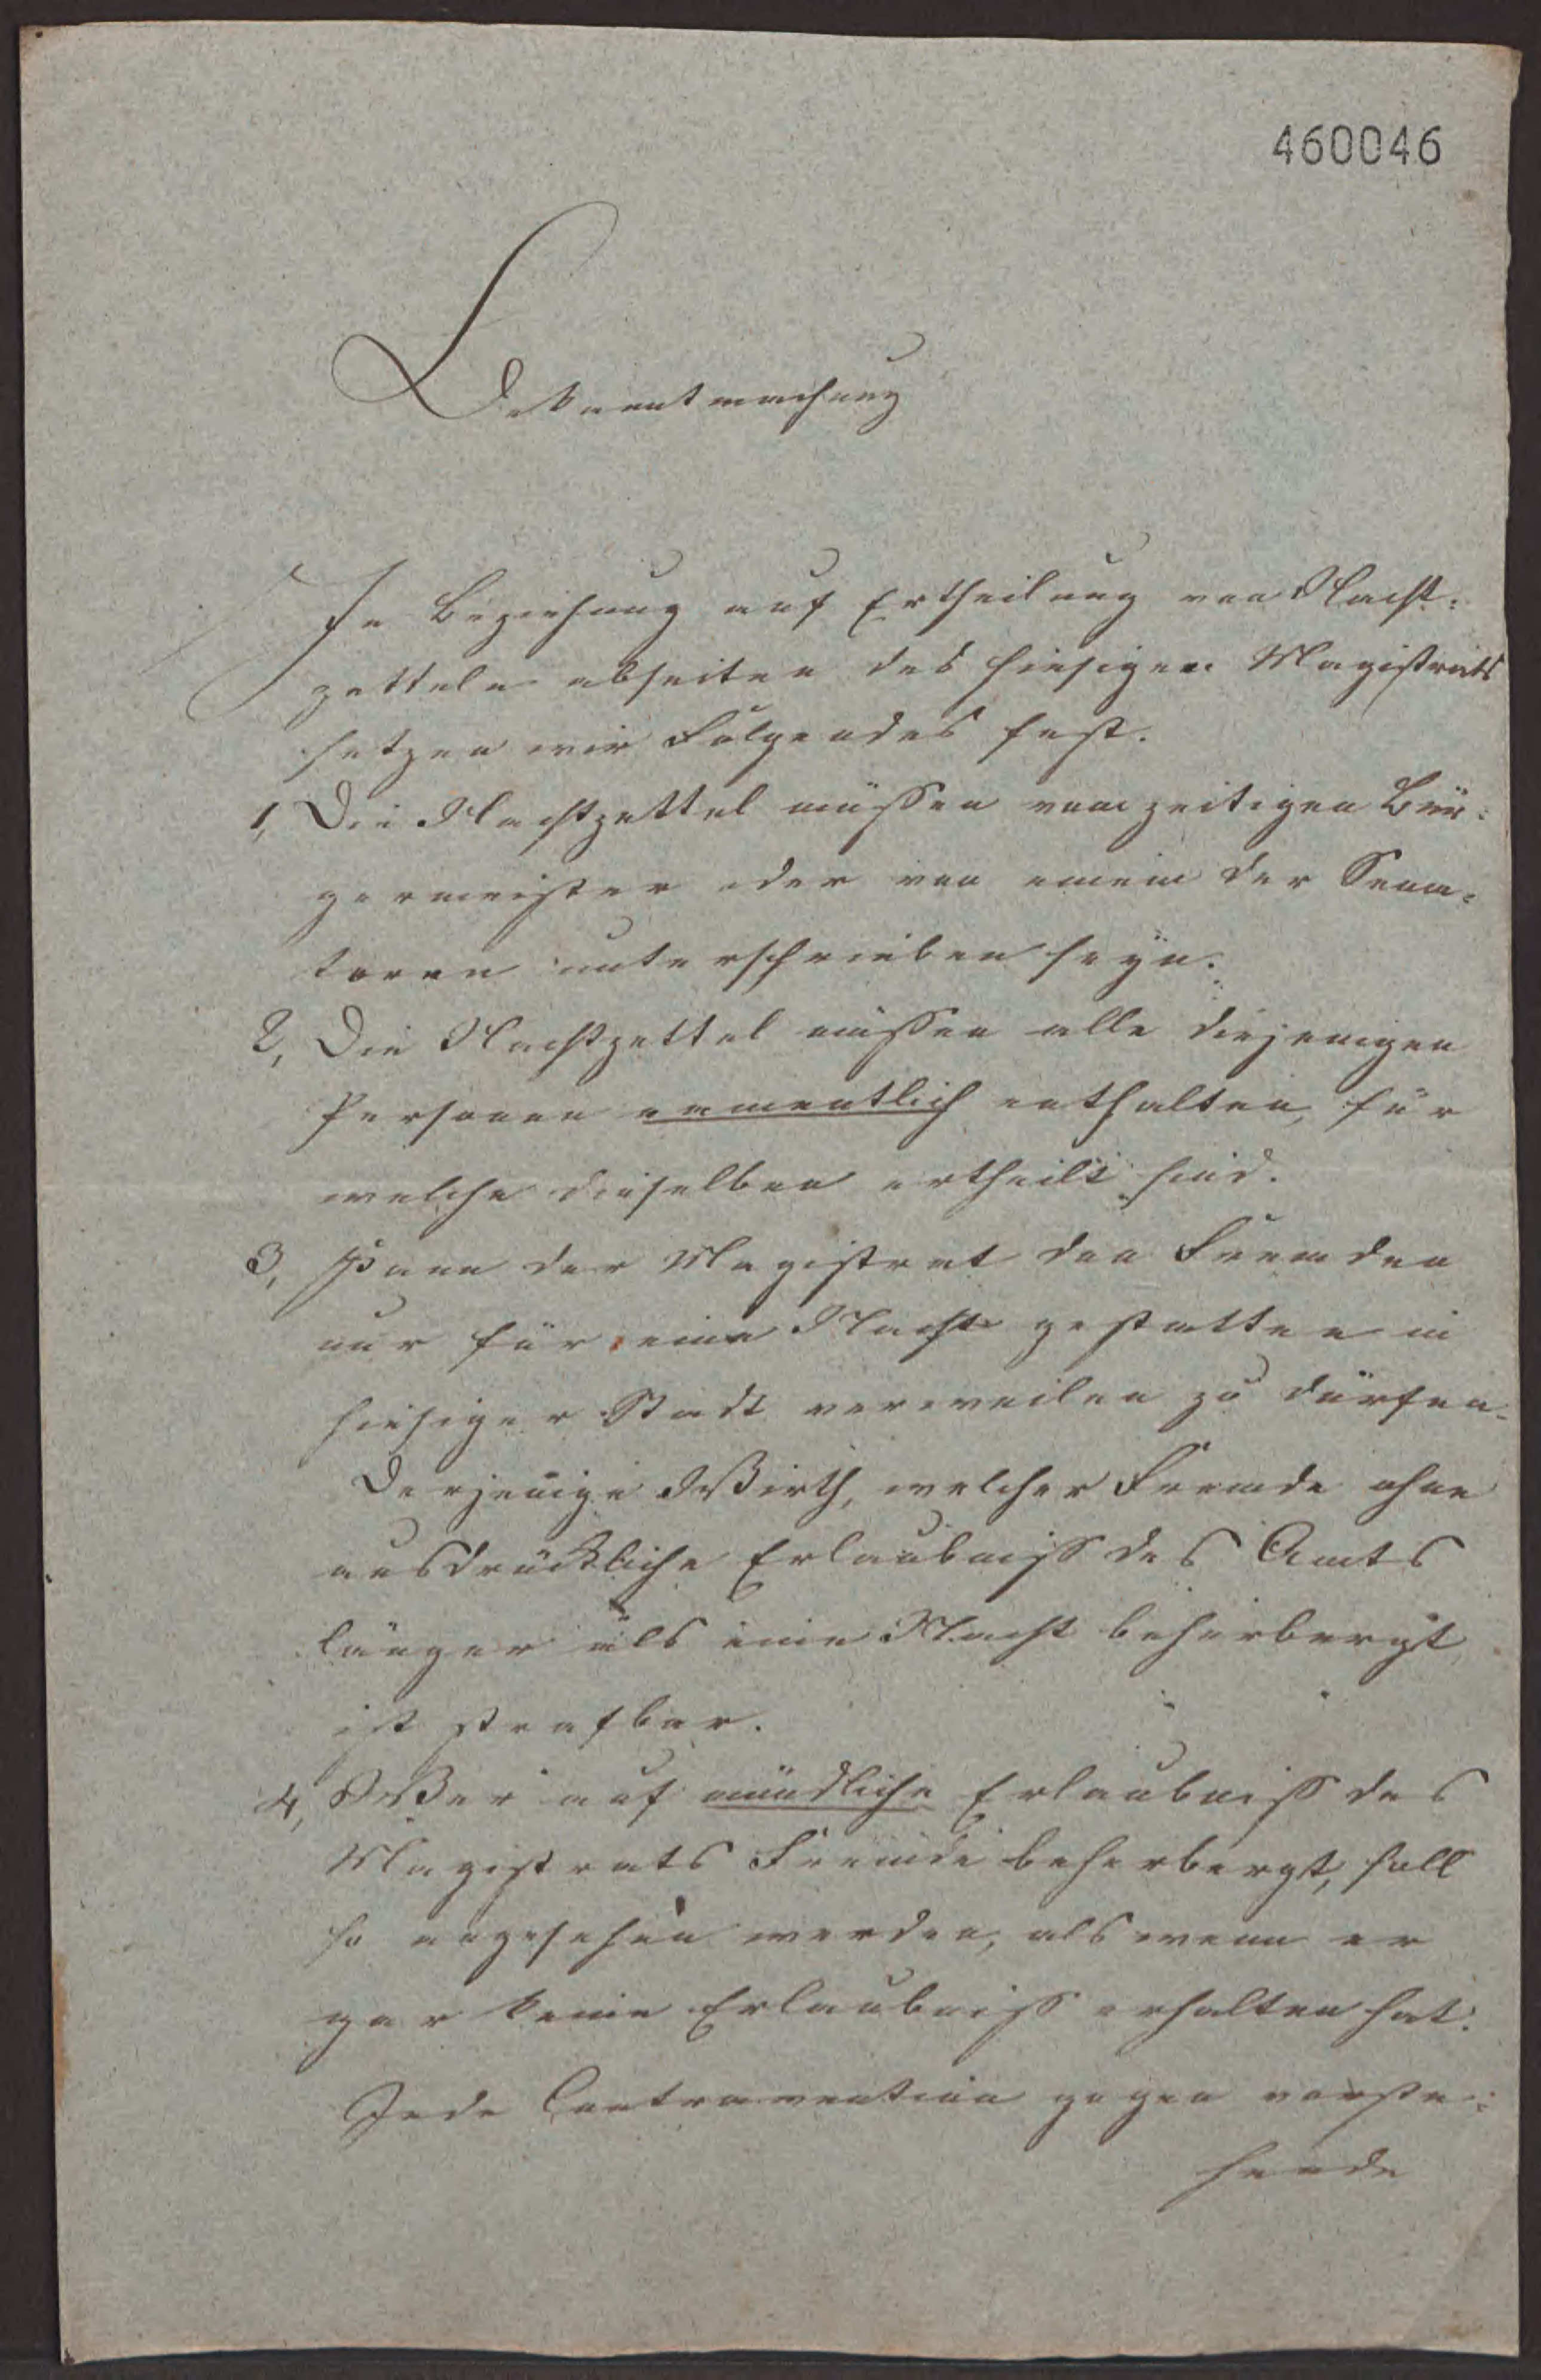 460046
Bekanntmachung
In Beziehung auf Ertheilung von Nacht-
zetteln abseiten des hiesigen Magistrats
setzen wir Folgendes fest.
1, Die Nachtzettel müssen vom zeitigen Bür-
germeister oder von einem der Sena-
toren unterschrieben seyn.
2, Die Nachtzettel müssen alle diejenigen
Personen namentlich enthalten, für
welche dieselben ertheilt sind.
3, Kann der Magistrat den Fremden
nur für eine Nacht gestatten in
hiesiger Stadt verweilen zu dürfen.
Derjenige Wirth, welcher Fremde ohne
ausdrückliche Erlaubniß des Amts
länger als eine Nacht beherbergt,
ist strafbar.
4, Wer auf mündliche Erlaubniß des
Magistrats Fremde beherbergt, soll
so angesehen werden, als wenn er
gar keine Erlaubniß erhalten hat.
Jede Contravention gegen vorste-
hende